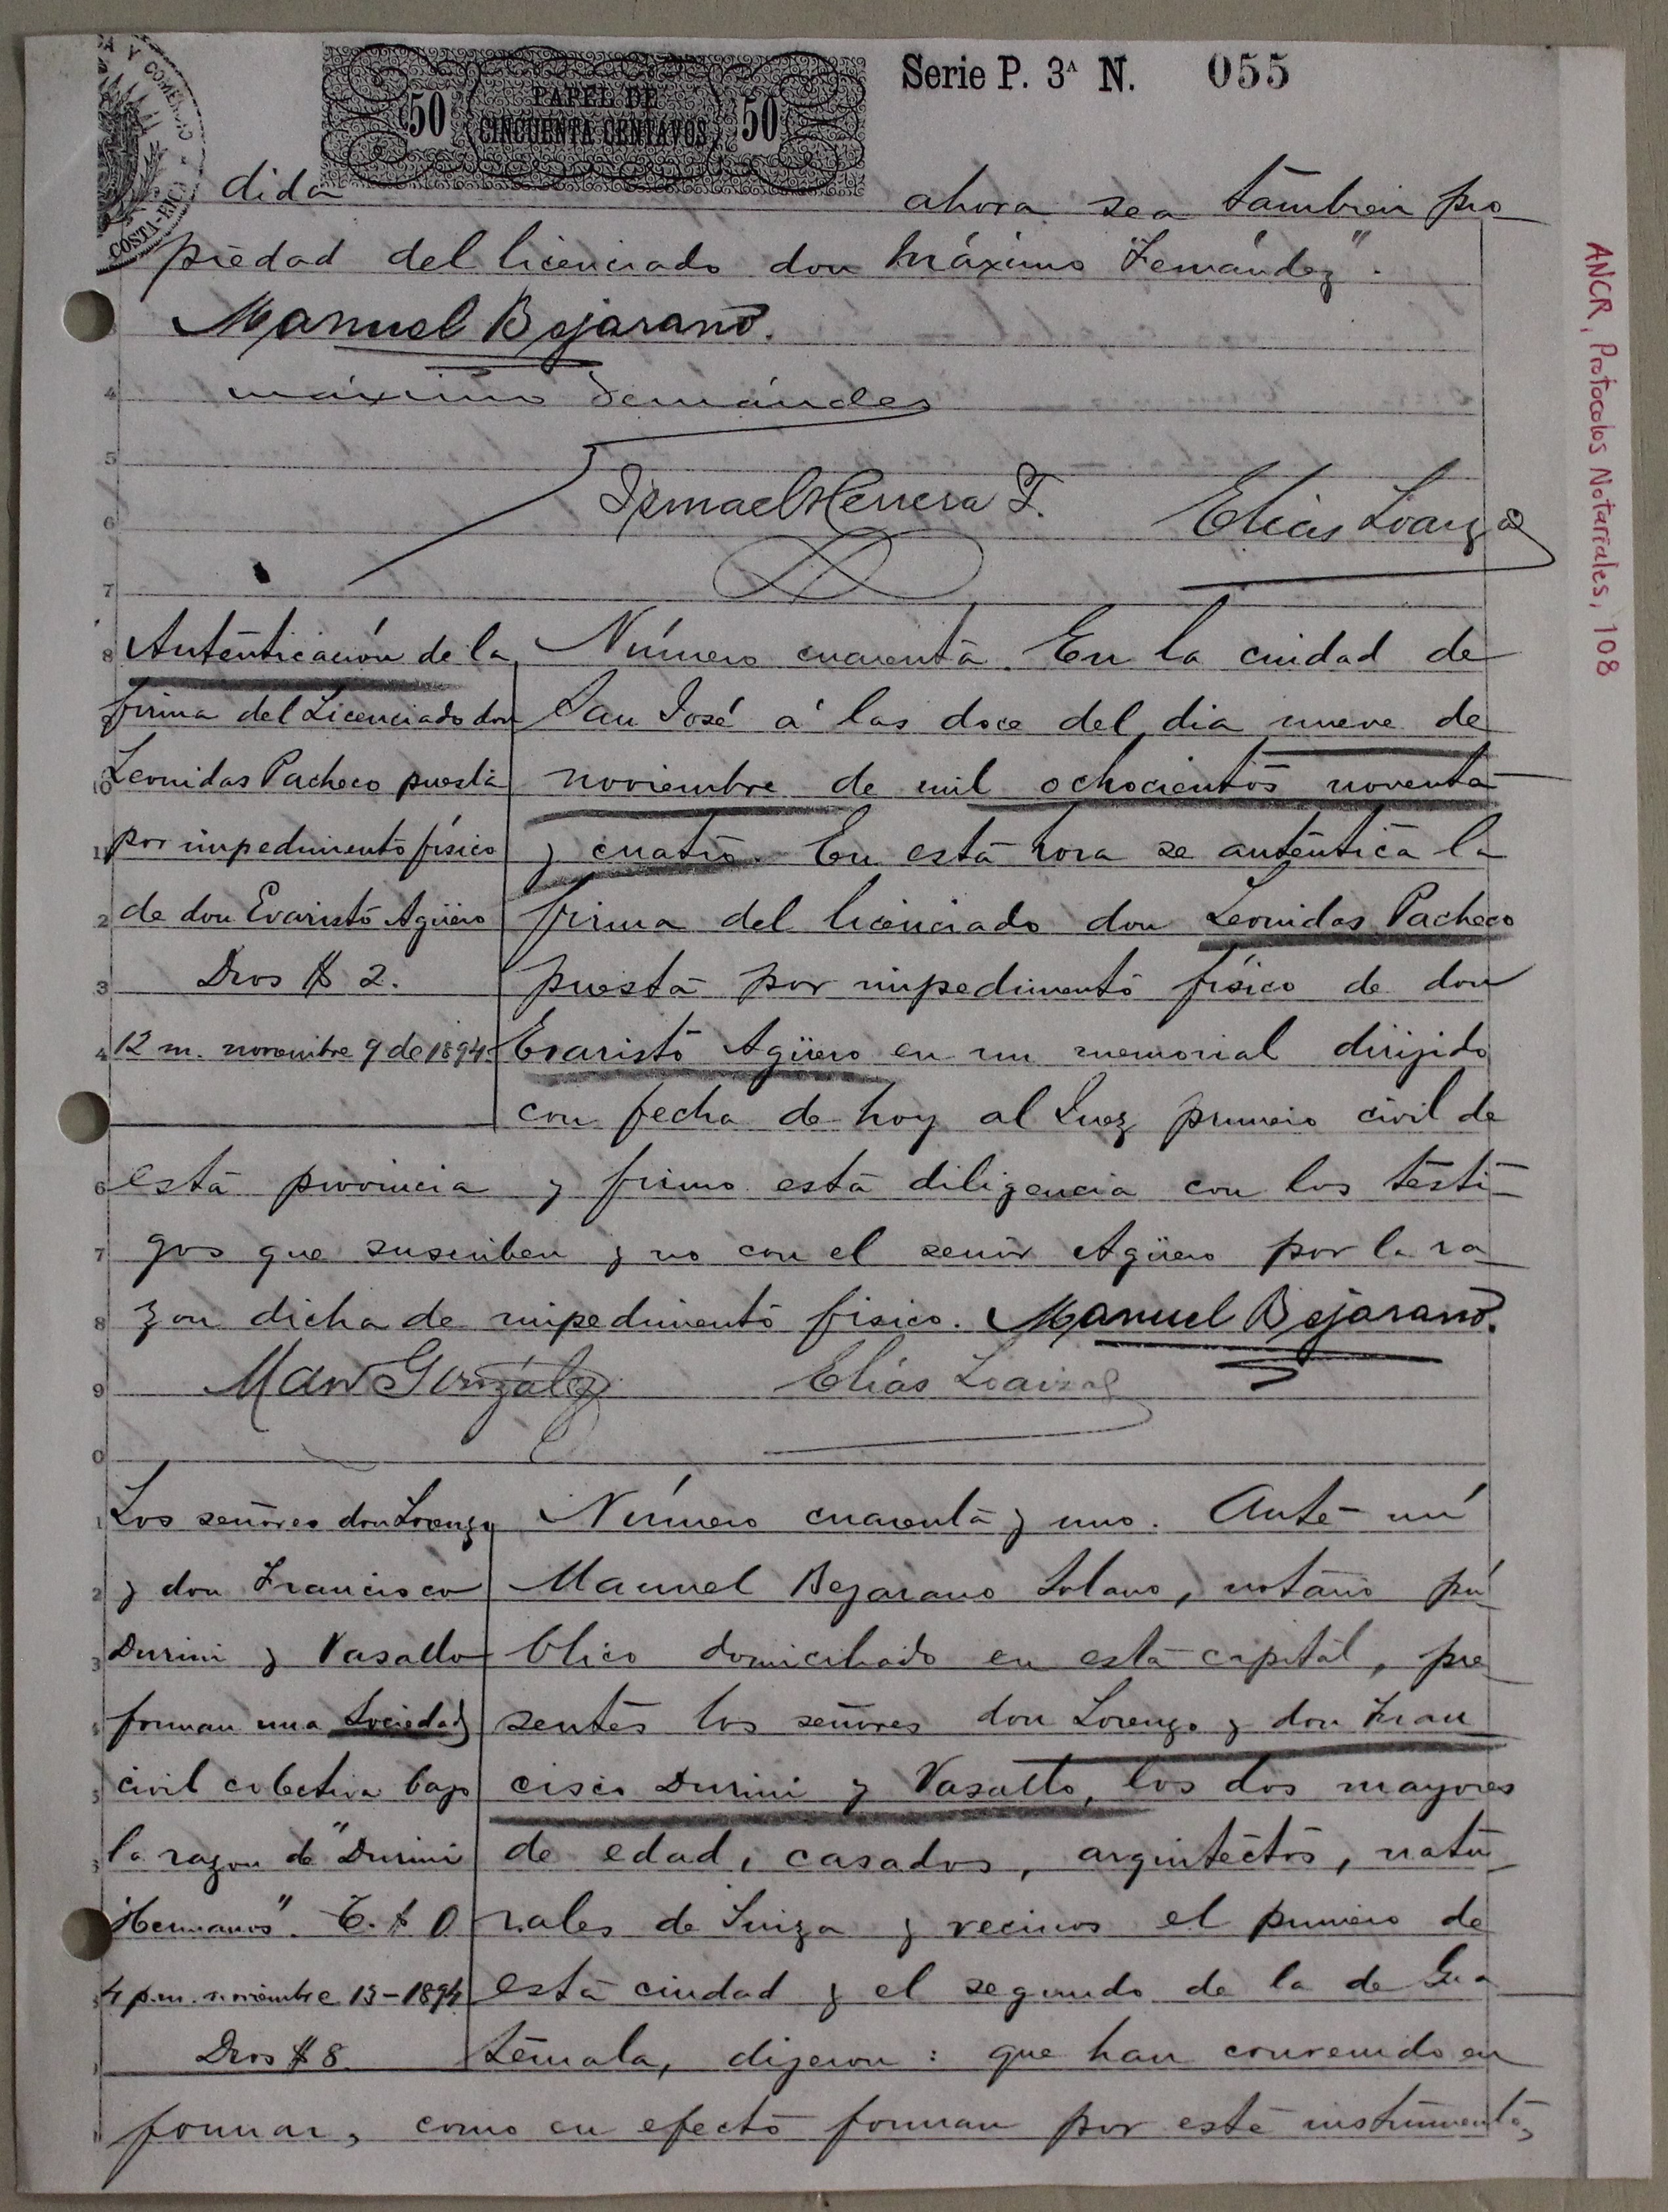 Serie P. 3ᴬ N. 055
50 PAPEL DE 50
CINCUENTA CENTAVOS
COSTA-RICA
dida ahora sea tambien pro
piedad del licenciado don Máximo Fernández".
Manuel Bejarano.
máximo Fernández
Ismael Herrera T. Elias Loaiza
Autenticación de la
firma del Licenciado don
Leonidas Pacheco puesta
por impedimento físico
de don Evaristo Agüero
Dros $ 2.
12 m. noviembre 9 de 1894.
Número cuarenta. En la ciudad de
San José á las doce del dia nueve de
noviembre de mil ochocientos noventa
y cuatro. En esta hora se autentica la
firma del licenciado don Leonidas Pacheco
puesta por impedimento físico de don
Evaristo Agüero en un memorial dirijido
con fecha de hoy al Juez primero civil de
esta provincia y firmo esta diligencia con los testi-
gos que suscriben y no con el señor Agüero por la ra
zon dicha de impedimento fisico. Manuel Bejarano.
Man González Elías Loaiza
Los señores don Lorenzo
y don Francisco
Durini y Vasallo
forman una Sociedad
civil colectiva bajo
la razon de "Durini
Hermanos".
4 p.m. noviembre 13-1894
Dros $ 8.
Número cuarenta y uno. Ante mí
Manuel Bejarano Solano, notario pú
blico domiciliado en esta capital, pre
sentes los señores don Lorenzo y don Fran
cisco Durini y Vasallo, los dos mayores
de edad, casados, arquitectos, natu
rales de Suiza y vecinos el primero de
esta ciudad y el segundo de la de Gua
temala, dijeron: que han convenido en
formar, como en efecto forman por este instrumento,
ANCR, Protocolos Notariales, 108